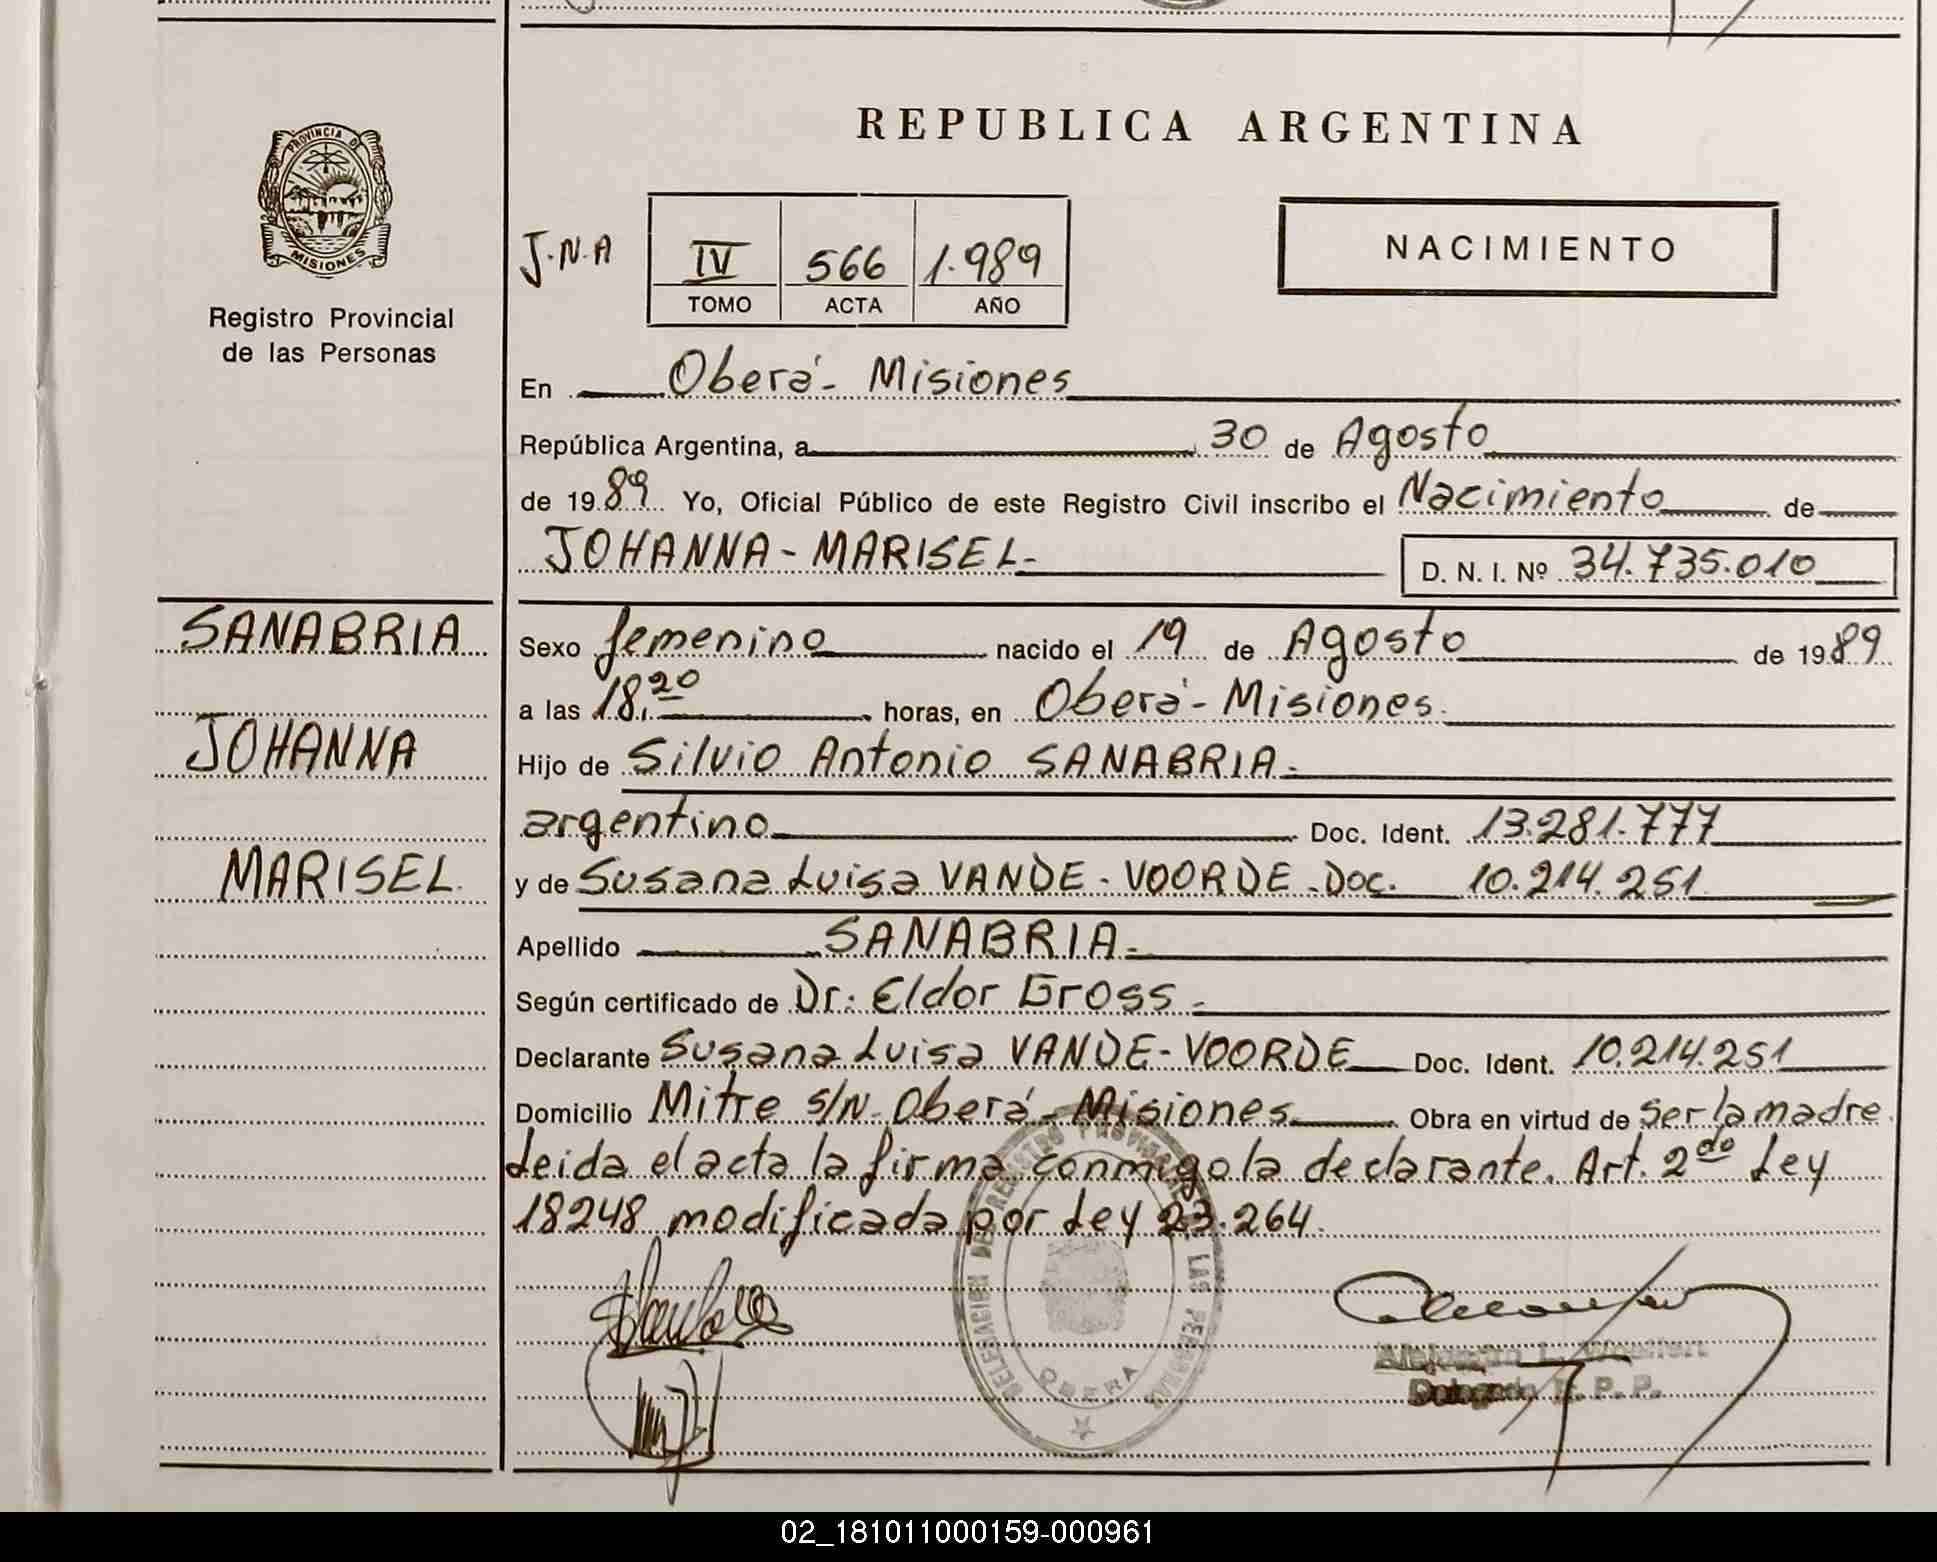 PROVINCIA DE
MISIONES
Registro Provincial
de las Personas
SANABRIA
JOHANNA
MARISEL.
REPUBLICA ARGENTINA
J.N.A
IV 566 1.989
TOMO ACTA AÑO
NACIMIENTO
En Oberá- Misiones
República Argentina, a 30 de Agosto
de 1989 Yo, Oficial Público de este Registro Civil inscribo el Nacimiento de
JOHANNA-MARISEL- D. N. I. Nº 34.735.010
Sexo femenino nacido el 19 de Agosto de 1989
a las 18,20 horas, en Oberá- Misiones.
Hijo de Silvio Antonio SANABRIA.-
argentino Doc. Ident. 13.281.777
y de Susana Luisa VANDE-VOORDE-Doc. 10.214.251
Apellido SANABRIA.-
Según certificado de Dr.: Eldor Gross.-
Declarante Susana Luisa VANDE-VOORDE Doc. Ident. 10.214.251
Domicilio Mitre S/N-Oberá-Misiones Obra en virtud de ser la madre.
Leida el acta la firma conmigo la declarante. Art. 2do Ley
18248 modificada por Ley 23.264.
DELEGACION DEL REGISTRO PROVINCIAL DE LAS PERSONAS
OBERA
Delegado R. P. P.
02_181011000159-000961